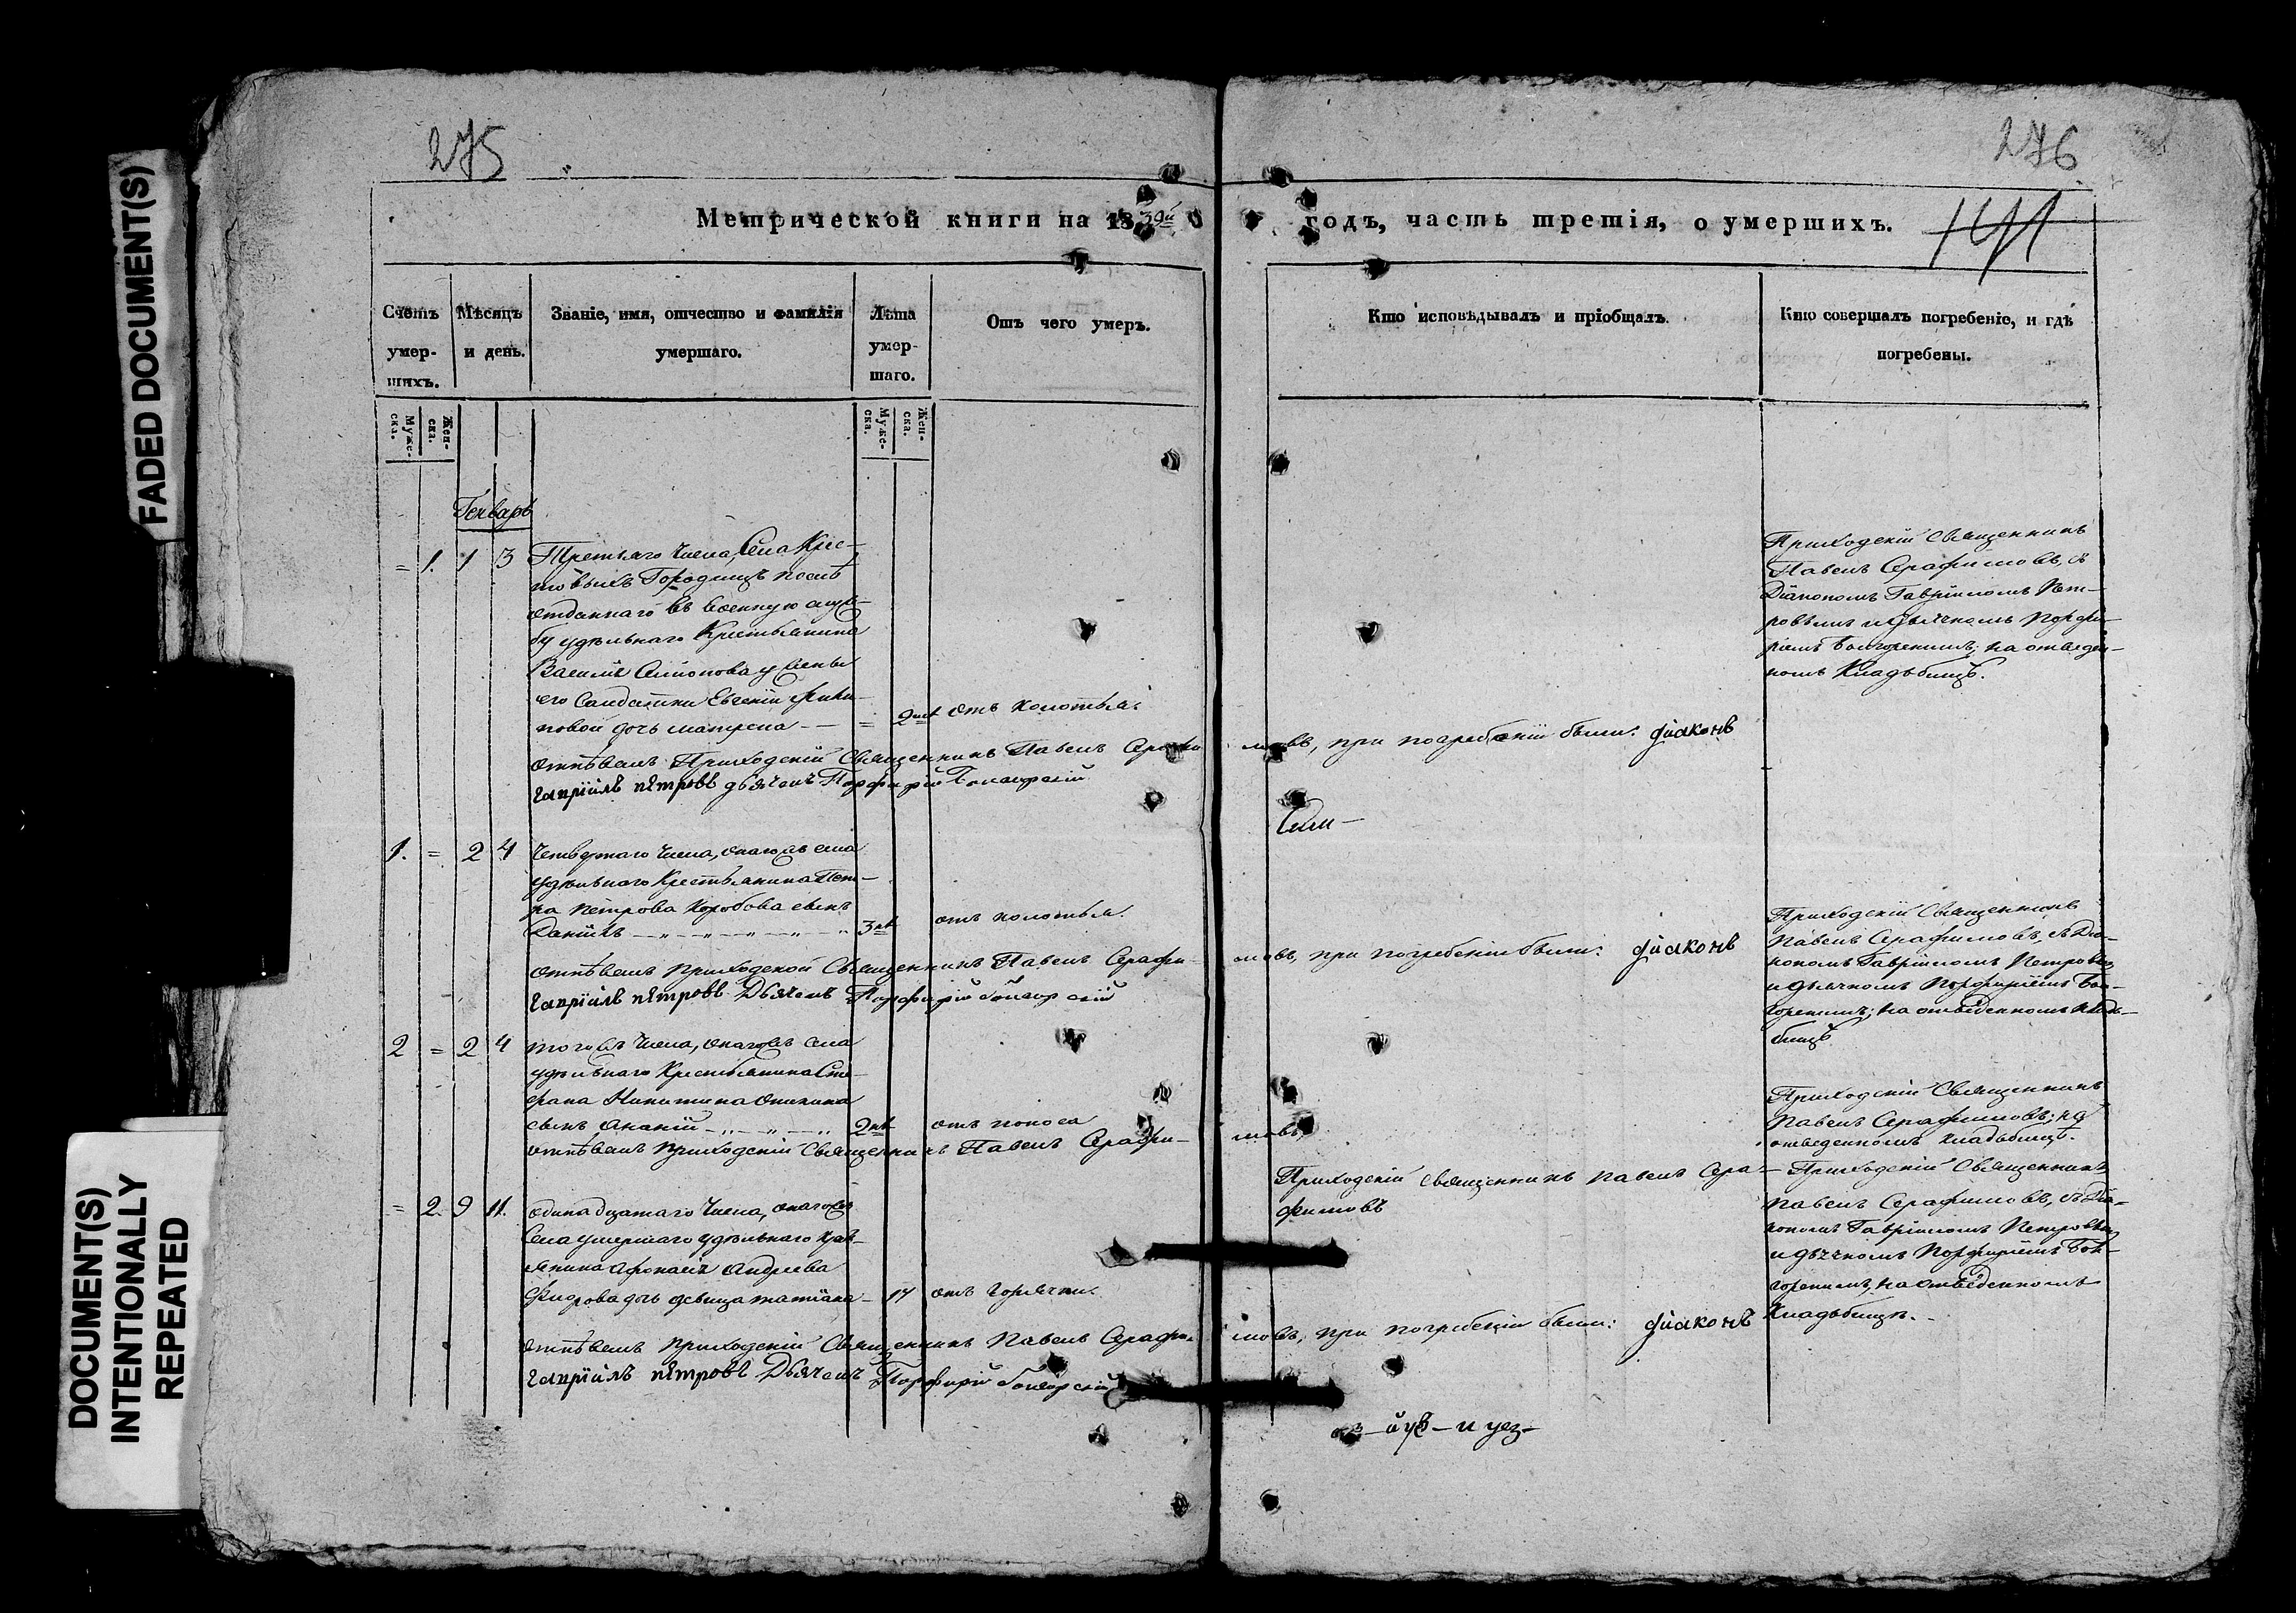 275
276
Метрической книги на 1839й
годъ, часть третія, о умершихъ.
FADED DOCUMENT(S)
Счетъ умер-
шихъ.
Мѣсяцъ
и день.
Званіе, имя, отчество и фамилія
умершаго.
Лѣта
умер-
шаго.
Отъ чего умеръ.
Кто исповѣдывалъ и пріобщалъ.
Кто совершалъ погребеніе, и гдѣ
погребены.
Мужес-
ска.
Жен-
ска.
Мужес-
ска.
Жен-
ска.
Генварь
= 1. 1 3 Третьяго числа, Села Крес-
товыхъ Городищъ послѣ
отданнаго въ военную служ-
бу удѣльнаго Крестьянина
Василья у жены
его Солдатки Евгеніи Фили-
повой дочь матрена — = 2 лѣт отъ колотья.
Приходскій Священникъ
Павелъ Серафимовъ, съ
Діакономъ Гавріиломъ Пет-
ровымъ и дьячкомъ Порфи-
ріемъ на отведен-
номъ Кладбищѣ.
отпѣвалъ Приходскій Священникъ Павелъ Серафи- мовъ, при погребеніи были: діаконъ
гавріилъ петровъ дьячекъ Порфирій
1. = 2 4 Четвертаго числа, онагожъ села
удѣльнаго Крестьянина Пет-
ра Петрова Коробова сынъ
Даніилъ — „ — „ — „ — „ 3 лѣт отъ колотья.
Приходскій Священникъ
Павелъ Серафимовъ, съ Діа-
кономъ Гавріиломъ Петровым
и дьячкомъ Порфиріемъ Бол-
горскимъ; на отведенномъ клад-
бищѣ
отпѣвалъ приходской Священникъ Павелъ Серафи- мовъ, при погребеніи были: діаконъ
гавріилъ петровъ Дьячекъ Порфирій
2 = 2 4 тогожъ числа, онагожъ села
удѣльнаго Крестьянина Сте-
фана Никитина
сынъ Ананій — „ — „ — „ 2 лѣт отъ поноса
Приходскій Священникъ
Павелъ Серафимовъ; на
отведенномъ кладбищѣ.
отпѣвалъ приходскій Священникъ Павелъ Серафи- мовъ
= 2. 9 11. одинадцатаго числа, онагожъ
Села умершаго удѣльнаго крес-
тьянина Афонасія Андреева
дочь девица татіана — 17 отъ горячки.
Приходскій священникъ Павелъ Сера-
фимовъ
Приходскій Священникъ
Павелъ Серафимовъ, съ Діа-
кономъ Гавріиломъ Петровым
и дьячкомъ Порфиріемъ Бол-
горскимъ, на отведенномъ
Кладбищѣ.
отпѣвалъ приходскій Священникъ Павелъ Серафи- мовъ, при погребеніи были: діаконъ
гавріилъ петровъ Дьячекъ Порфирій
DOCUMENT(S)
INTENTIONALLY
REPEATED